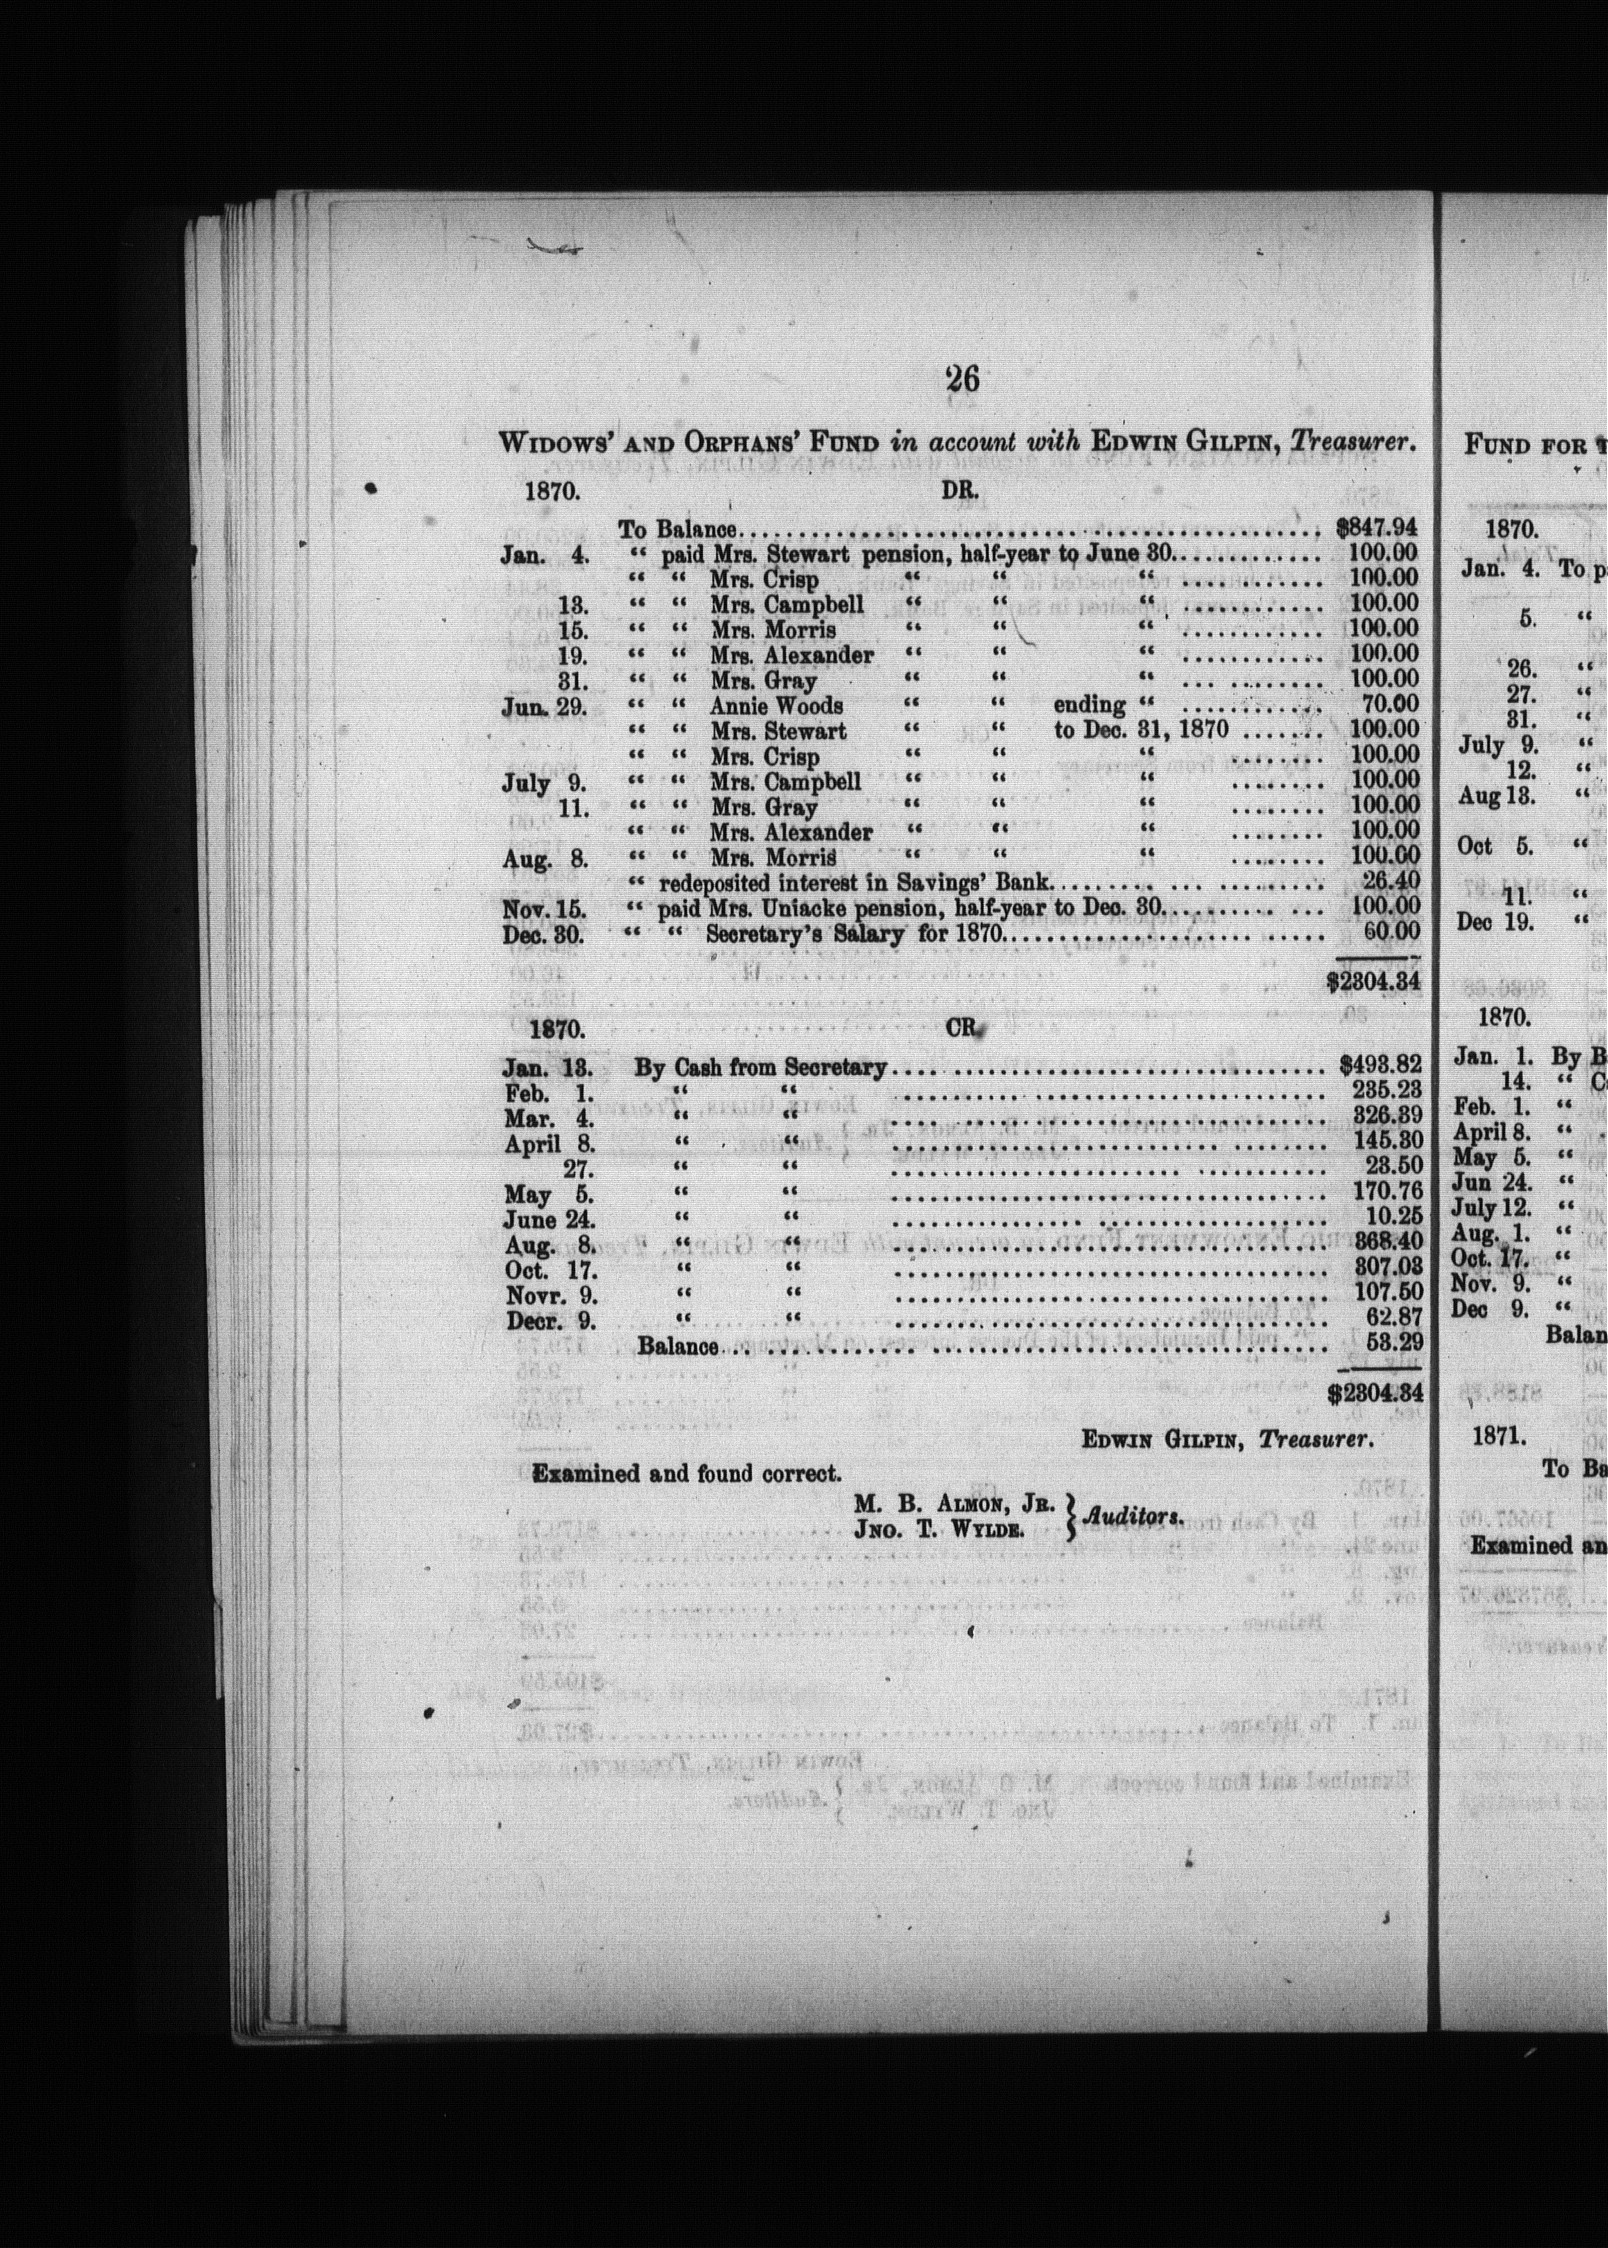 26
WIDOWS' AND ORPHANS' FUND in account with EDWIN GILPIN, Treasurer.
1870. DR.
To Balance.................... $847.94
Jan. 4. “ paid Mrs. Stewart pension, half-year to June 30............. 100.00
“ “ Mrs. Crisp “ “ “ ............ 100.00
13. “ “ Mrs. Campbell “ “ “ ............ 100.00
15. “ “ Mrs. Morris “ “ “ ............ 100.00
19. “ “ Mrs. Alexander “ “ “ ............ 100.00
31. “ “ Mrs. Gray “ “ “ ............ 100.00
Jun. 29. “ “ Annie Woods “ “ ending “ ............ 70.00
“ “ Mrs. Stewart “ “ to Dec. 31, 1870 ....... 100.00
“ “ Mrs. Crisp “ “ “ ........ 100.00
July 9. “ “ Mrs. Campbell “ “ “ ........ 100.00
11. “ “ Mrs. Gray “ “ “ ........ 100.00
“ “ Mrs. Alexander “ “ “ ........ 100.00
Aug. 8. “ “ Mrs. Morris “ “ “ ........ 100.00
“ redeposited interest in Savings' Bank.................... 26.40
Nov. 15. “ paid Mrs. Uniacke pension, half-year to Dec. 30............. 100.00
Dec. 30. “ “ Secretary's Salary for 1870.................... 60.00
$2304.34
1870. CR.
Jan. 13. By Cash from Secretary.................... $493.82
Feb. 1. “ “ .................... 235.23
Mar. 4. “ “ .................... 326.39
April 8. “ “ .................... 145.30
27. “ “ .................... 23.50
May 5. “ “ .................... 170.76
June 24. “ “ .................... 10.25
Aug. 8. “ “ .................... 368.40
Oct. 17. “ “ .................... 307.03
Novr. 9. “ “ .................... 107.50
Decr. 9. “ “ .................... 62.87
Balance.................... 53.29
$2304.34
EDWIN GILPIN, Treasurer.
Examined and found correct.
M. B. ALMON, JR. } Auditors.
JNO. T. WYLDE.
FUND FOR
1870.
Jan. 4. To
5. “
26. “
27. “
31. “
July 9. “
12. “
Aug 13. “
Oct 5. “
11. “
Dec 19. “
1870.
Jan. 1. By
14. “
Feb. 1. “
April 8. “
May 5. “
Jun 24. “
July 12. “
Aug. 1. “
Oct. 17. “
Nov. 9. “
Dec 9. “
Balan
1871.
To Ba
Examined an